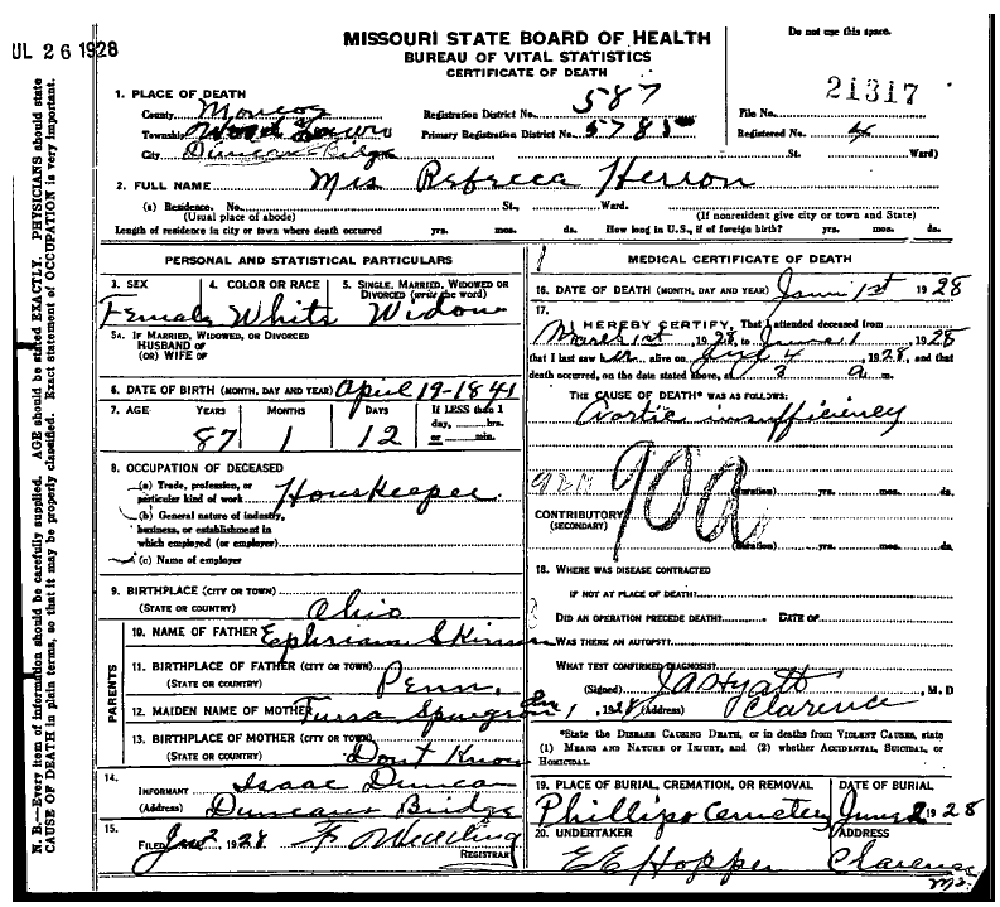 JUL 26 1928
MISSOURI STATE BOARD OF HEALTH
BUREAU OF VITAL STATISTICS
CERTIFICATE OF DEATH
Do not use this space.
21317
1. PLACE OF DEATH
County Monroe Registration District No. 587 File No.
Township Primary Registration District No. 5785 Registered No. 4
City Duncans Bridge St. Ward)
2. FULL NAME Mrs Rebreca Herron
(a) Residence. No. St., Ward.
(Usual place of abode) (If nonresident give city or town and State)
Length of residence in city or town where death occurred yrs. mos. ds. How long in U.S., if of foreign birth? yrs. mos. ds.
PERSONAL AND STATISTICAL PARTICULARS
3. SEX 4. COLOR OR RACE 5. SINGLE, MARRIED, WIDOWED OR
DIVORCED (write the word)
Female White Widow
5A. IF MARRIED, WIDOWED, OR DIVORCED
HUSBAND OF
(OR) WIFE OF
6. DATE OF BIRTH (MONTH, DAY AND YEAR) April 19-1841
7. AGE YEARS MONTHS DAYS If LESS than 1
day, hrs.
or min.
87 1 12
8. OCCUPATION OF DECEASED
(a) Trade, profession, or
particular kind of work Houskeeper.
(b) General nature of industry,
business, or establishment in
which employed (or employer)
(c) Name of employer
9. BIRTHPLACE (CITY OR TOWN)
(STATE OR COUNTRY) Ohio
PARENTS
10. NAME OF FATHER Ephriam Skinner
11. BIRTHPLACE OF FATHER (CITY OR TOWN)
(STATE OR COUNTRY) Penn.
12. MAIDEN NAME OF MOTHER
13. BIRTHPLACE OF MOTHER (CITY OR TOWN)
(STATE OR COUNTRY) Dont Know
14.
INFORMANT Isaac Duncan
(Address) Duncans Bridge
15.
FILED 2 1928 F
REGISTRAR
MEDICAL CERTIFICATE OF DEATH
16. DATE OF DEATH (MONTH, DAY AND YEAR) June 1st 1928
17.
I HEREBY CERTIFY, That I attended deceased from
1st, 1928, to June 1, 1928
that I last saw her alive on 4, 1928, and that
death occurred, on the date stated above, at 3 a m.
THE CAUSE OF DEATH* WAS AS FOLLOWS:
Aortic insufficiency
92A
90a
(duration) yrs. mos. ds.
CONTRIBUTORY
(SECONDARY)
(duration) yrs. mos. ds.
18. WHERE WAS DISEASE CONTRACTED
IF NOT AT PLACE OF DEATH?
DID AN OPERATION PRECEDE DEATH? DATE OF
WAS THERE AN AUTOPSY?
WHAT TEST CONFIRMED DIAGNOSIS?
(Signed) J A Hyatt, M. D
1, 1928 (Address) Clarence
*State the DISEASE CAUSING DEATH, or in deaths from VIOLENT CAUSES, state
(1) MEANS AND NATURE OF INJURY, and (2) whether ACCIDENTAL, SUICIDAL, or
HOMICIDAL.
19. PLACE OF BURIAL, CREMATION, OR REMOVAL DATE OF BURIAL
Phillips Cemetery June 2 1928
20. UNDERTAKER ADDRESS
E E Hopper Clarence
Mo.
N. B.—Every item of information should be carefully supplied. AGE should be stated EXACTLY. PHYSICIANS should state
CAUSE OF DEATH in plain terms, so that it may be properly classified. Exact statement of OCCUPATION is very important.